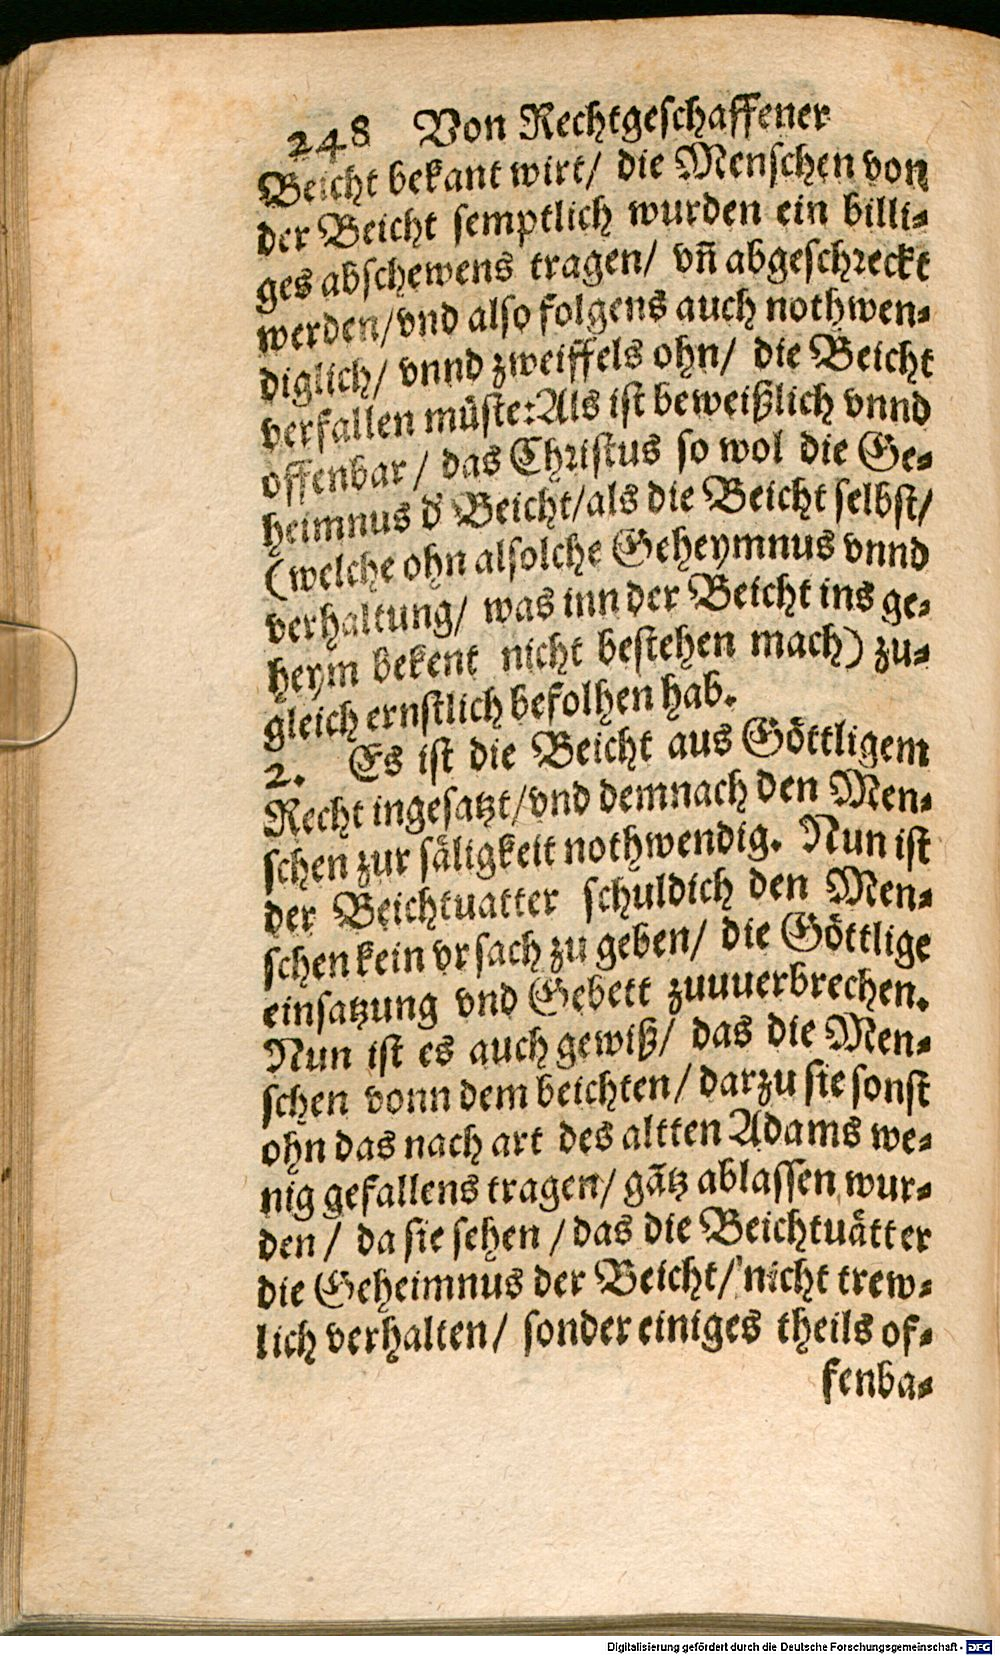 248 Von Rechtgeschaffener
Beicht bekant wirt/ die Menschen von
der Beicht semptlich wurden ein billi⸗
ges abschewens tragen/ vñ abgeschreckt
werden/vnd also folgens auch nothwen⸗
diglich/ vnnd zweiffels ohn/ die Beicht
verfallen müste:Als ist beweißlich vnnd
offenbar/ das Christus so wol die Ge⸗
heimnus d' Beicht/als die Beicht selbst/
(welche ohn alsolche Geheymnus vnnd
verhaltung/ was inn der Beicht ins ge⸗
heym bekent nicht bestehen mach) zu⸗
gleich ernstlich befolhen hab.
2. Es ist die Beicht aus Göttligem
Recht ingesatzt/vnd demnach den Men⸗
schen zur säligkeit nothwendig. Nun ist
der Beichtuatter schuldich den Men⸗
schen kein vrsach zu geben/ die Göttlige
einsatzung vnd Gebett zuuuerbrechen.
Nun ist es auch gewiß/ das die Men⸗
schen vonn dem beichten/ darzu sie sonst
ohn das nach art des altten Adams we⸗
nig gefallens tragen/ gãtz ablassen wur⸗
den/ da sie sehen/das die Beichtuätter
die Geheimnus der Beicht/ nicht trew⸗
lich verhalten/ sonder einiges theils of⸗
fenba⸗
Digitalisierung gefördert durch die Deutsche Forschungsgemeinschaft - DFG